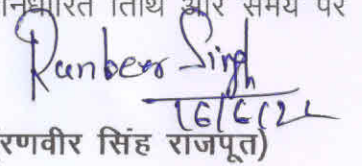 निर्धारित तिथि और समय पर
Ranbeer Singh
16/6/22
(रणवीर सिंह राजपूत)